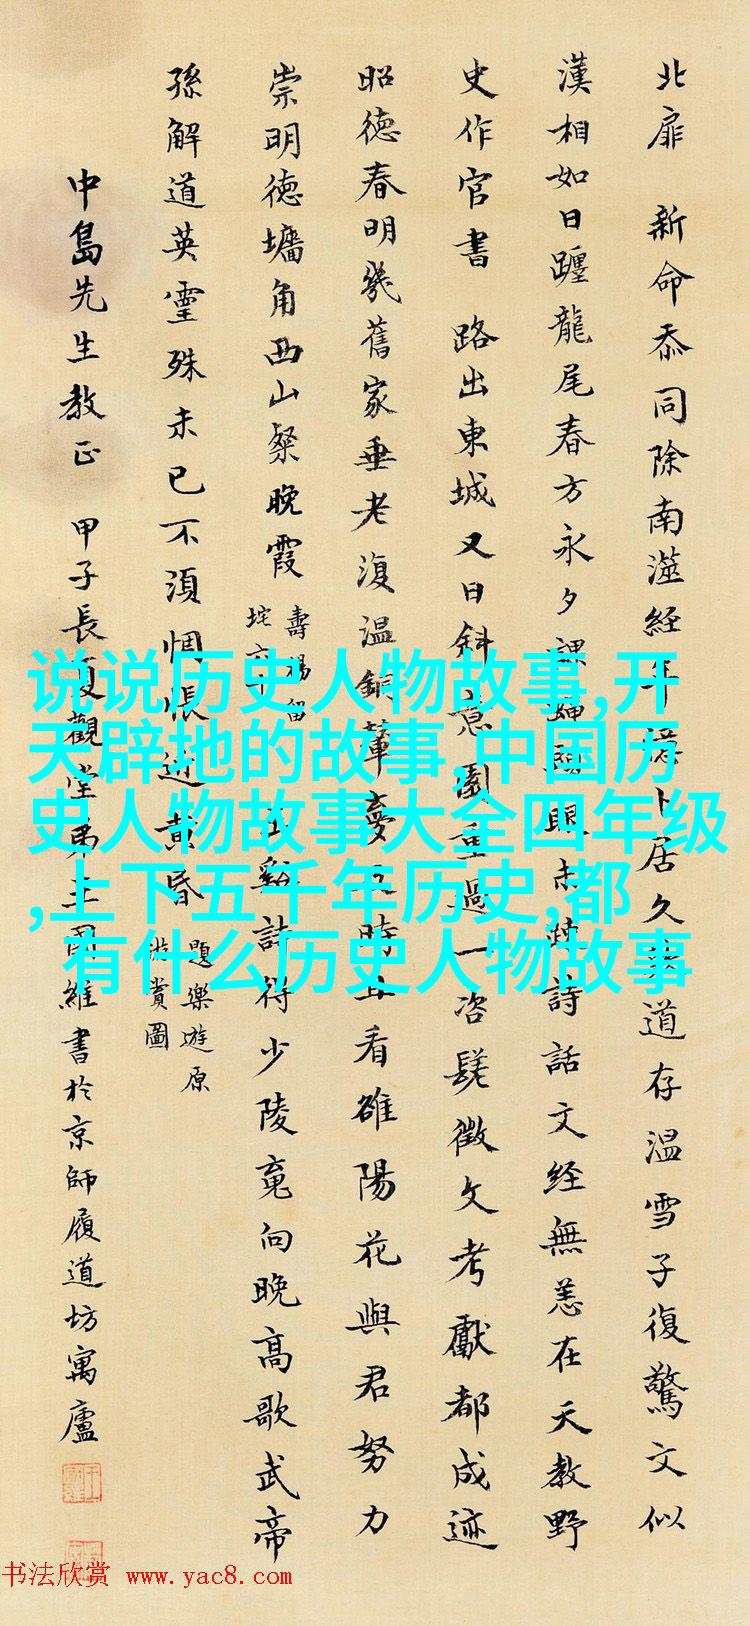 北扉 新命忝同除南澨经年卜居久要道存温雪子復驚文似
漢相如日躔龍尾春方永夕課頭眼未疎詩話文经無恙在天教野
史作官書 路出東城又日斜意園重過一咨嗟徵文考獻都成迹
昭德春明幾舊家垂老復温銅輦夢時且看雒陽花與君努力
崇明德墉角西山粲晚霞
壽楊留
垞六十
谿詩得少陵竟向晚高歌武帝
孫解道英靈殊未已不須惆悵近黄昏
題樂遊原
賞圖
中島先生教正 甲子長夏觀堂弟王國維書於京師履道坊寓廬
说说历史人物故事,开
天辟地的故事,中国历
史人物故事大全四年级
,上下五千年历史,都
有什么历史人物故事
书法欣赏 www.yac8.com